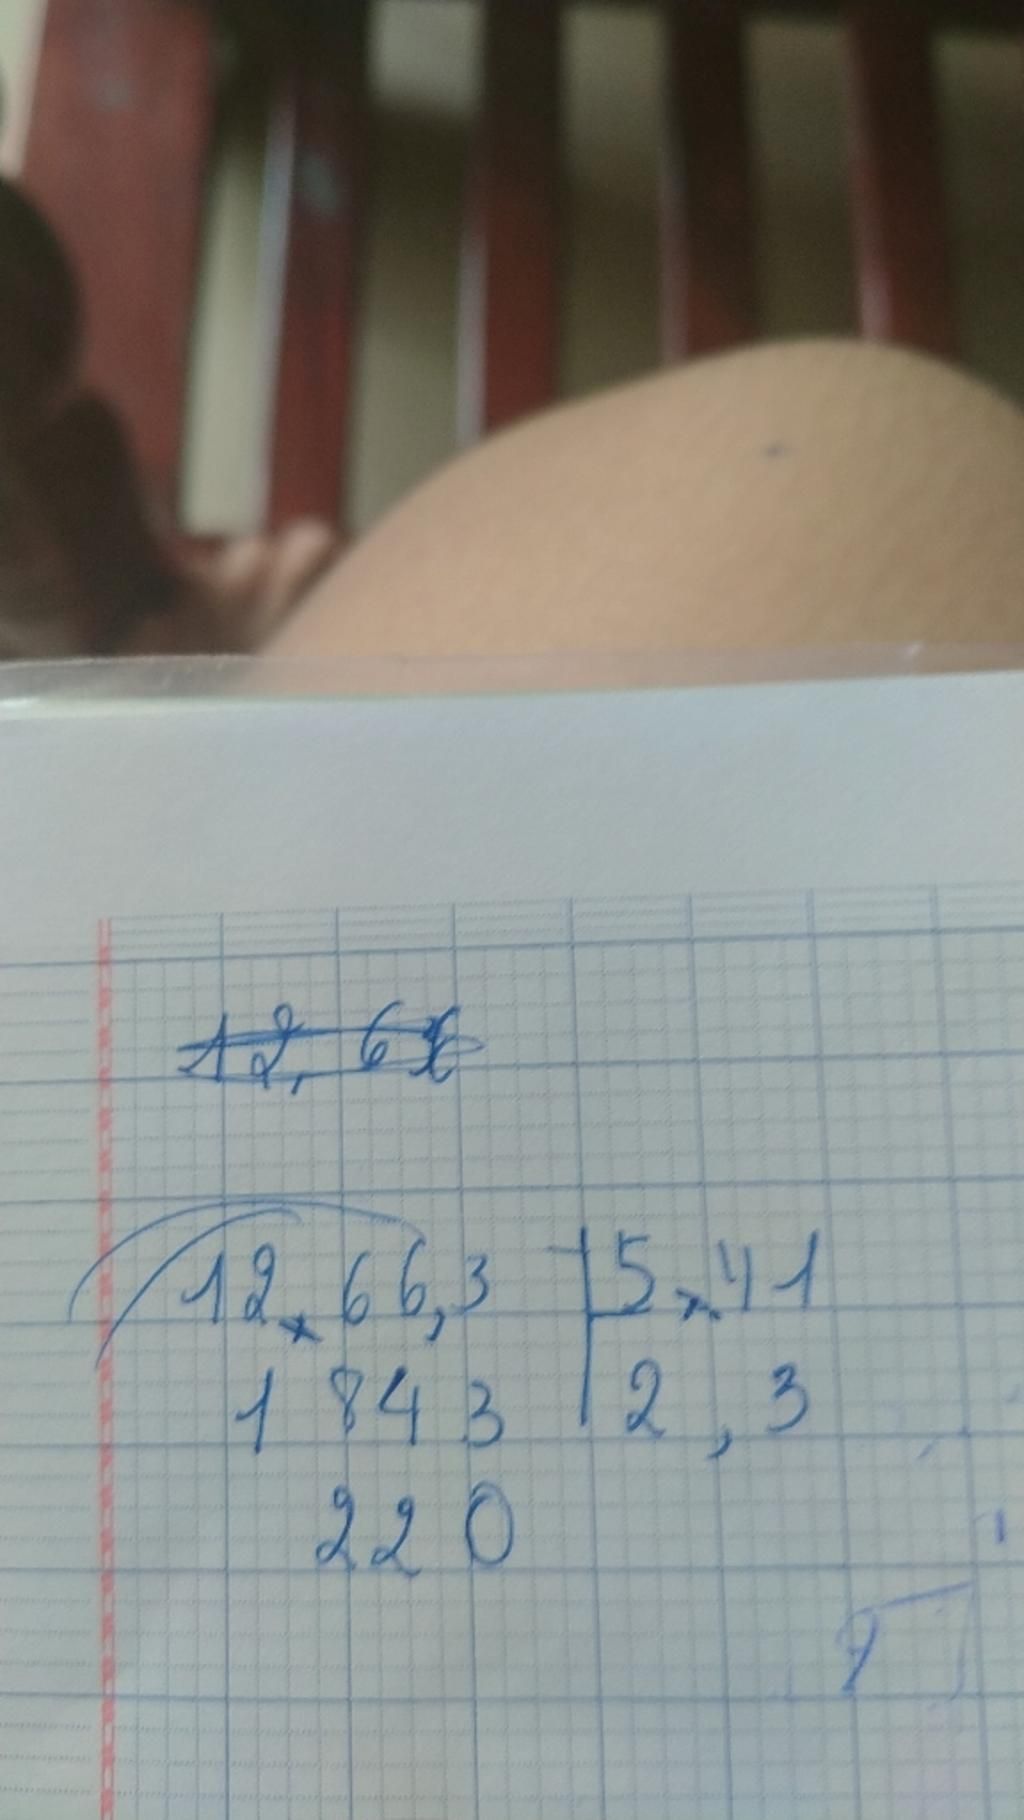 12,66,3 5,41
1843 2,3
220